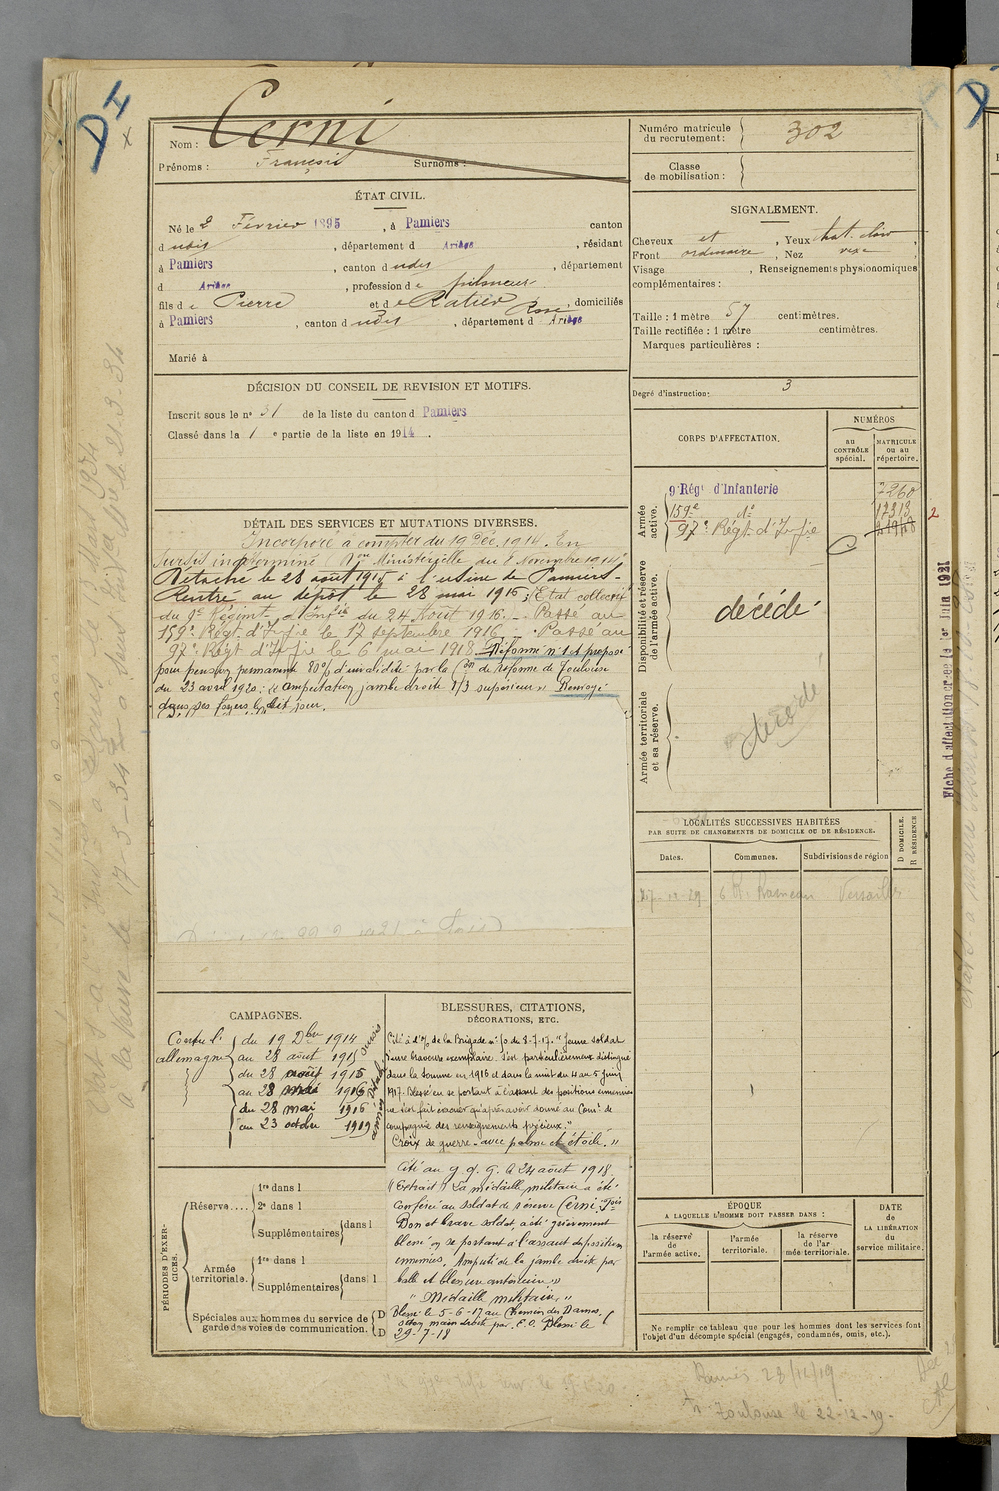 DI
Nom : Cerni
Prénoms : François Surnoms :
ÉTAT CIVIL.
Né le 2 Février 1895, à Pamiers canton
dudit, département d Ariège, résidant
à Pamiers, canton dudit, département
d Ariège, profession de
fils de Pierre et de Ratier Rose, domiciliés
à Pamiers, canton dudit, département d Ariège
Marié à
DÉCISION DU CONSEIL DE REVISION ET MOTIFS.
Inscrit sous le n° 31 de la liste du canton d Pamiers
Classé dans la 1 e partie de la liste en 1914.
DÉTAIL DES SERVICES ET MUTATIONS DIVERSES.
Incorporé à compter du 19 Déc. 1914. En
sursis indéterminé. Ministérielle du 8 Novembre 1914
Détaché le 28 août 1915 à l'usine de Pamiers.
Rentré au dépôt le 28 mai 1916; (Etat collectif
du 9e Régiment d'Infie du 24 Août 1916. - Passé au
159e Régt d'Infie le 17 septembre 1916. Passé au
97e Régt d'Infie le 6 mai 1918. Réformé n° 1 et proposé
pour pension permanente 80% d'invalidité par la Con de réforme de Toulouse
du 23 avril 1920: "amputation jambe droite 1/3 supérieur" Renvoyé
dans ses foyers le dit jour.
CAMPAGNES.
Contre l' du 19 Dbre 1914
allemagne au 28 août 1915
du 28 août 1915
au 28 mai 1916
du 28 mai 1916
au 23 octobre 1919
BLESSURES, CITATIONS,
DÉCORATIONS, ETC.
Cité à l'O/ de la Brigade n° 50 du 8-7-17. "Jeune soldat
d'une bravoure exemplaire. S'est particulièrement distingué
dans la Somme en 1916 et dans la nuit du 4 au 5 juin
1917. Blessé en se portant à l'assaut des positions ennemies
ne s'est fait évacuer qu'après avoir donné au Comt de
compagnie des renseignements précieux."
Croix de guerre - avec palme et étoile."
Cité au g. q. g. le 24 août 1918.
(Extrait) La médaille militaire a été
conférée au soldat de réserve Cerni, Fois
Bon et brave soldat, a été grièvement
blessé en se portant à l'assaut des positions
ennemies. Amputé de la jambe droite par
balle et blessure antérieure"
"Médaille militaire,"
Blessé le 5-6-17 au Chemin des Dames,
main droite par E.O. Blessé le
29-7-18
PÉRIODES D'EXERCICES.
Réserve....
1re dans l
2e dans l
Supplémentaires dans l
Armée territoriale.
1re dans l
Supplémentaires dans l
Spéciales aux hommes du service de garde des voies de communication. D D
Numéro matricule du recrutement : 302
Classe de mobilisation :
SIGNALEMENT.
Cheveux et, Yeux chat. clair
Front ordinaire, Nez vexe
Visage, Renseignements physionomiques
complémentaires :
Taille : 1 mètre 57 centimètres.
Taille rectifiée : 1 mètre centimètres.
Marques particulières :
Degré d'instruction : 3
CORPS D'AFFECTATION.
NUMÉROS
au CONTRÔLE spécial.
MATRICULE ou au répertoire.
Armée active.
9e Régt d'Infanterie 7260
159e do 17313
97e Régt d'Infie
Disponibilité et réserve de l'armée active.
décédé
Armée territoriale et sa réserve.
décédé
LOCALITÉS SUCCESSIVES HABITÉES
PAR SUITE DE CHANGEMENTS DE DOMICILE OU DE RÉSIDENCE.
Dates. Communes. Subdivisions de région
D DOMICILE.
R RÉSIDENCE
6 R. Rameau Versailles
ÉPOQUE
A LAQUELLE L'HOMME DOIT PASSER DANS :
la réserve de l'armée active.
l'armée territoriale.
la réserve de l'armée territoriale.
DATE de LA LIBÉRATION du service militaire.
Ne remplir ce tableau que pour les hommes dont les services font
l'objet d'un décompte spécial (engagés, condamnés, omis, etc.).
23/12/19
Toulouse le 22-12-19